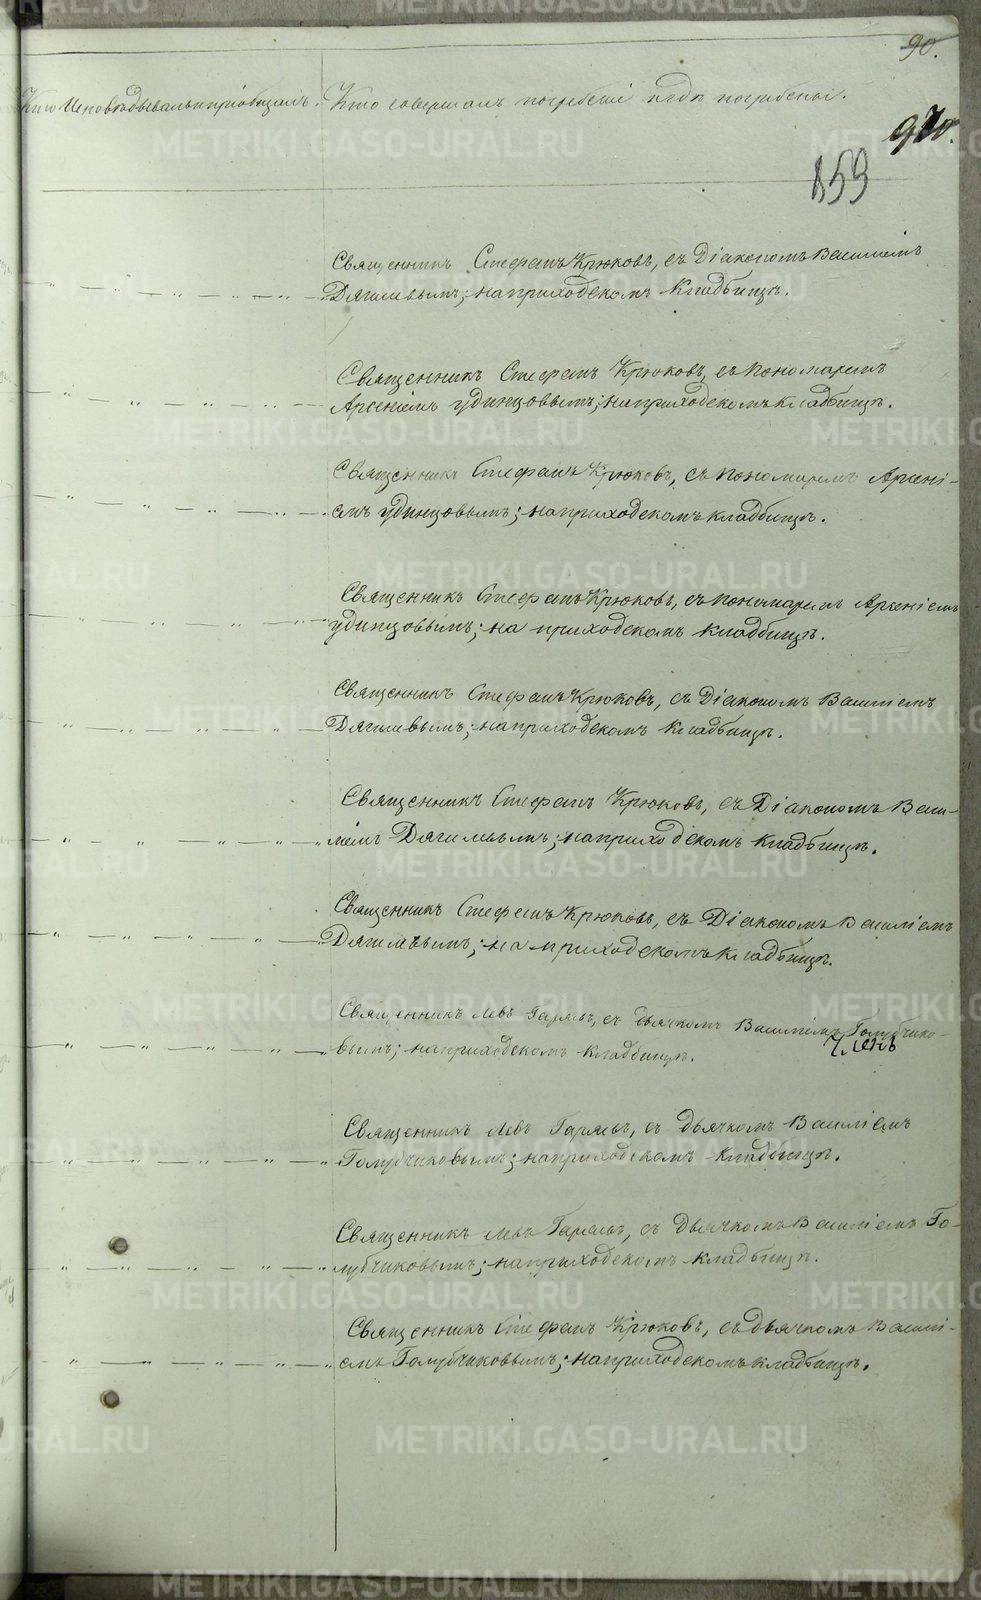 90.
970.
859
Кто Исповѣдывалъ и пріобщалъ. Кто совершалъ погребеніе и гдѣ погребены.
Священникъ Стефанъ Крюковъ, съ Діакономъ Василіемъ
Дягилевымъ; на приходскомъ кладбищѣ.
Священникъ Стефанъ Крюковъ, съ пономаремъ
Арсеніемъ Удинцовымъ; на приходскомъ кладбищѣ.
Священникъ Стефанъ Крюковъ, съ пономаремъ Арсені-
емъ Удинцовымъ; на приходскомъ кладбищѣ.
Священникъ Стефанъ Крюковъ, съ пономаремъ Арсеніемъ
Удинцовымъ; на приходскомъ кладбищѣ.
Священникъ Стефанъ Крюковъ, съ Діакономъ Василіемъ
Дягилевымъ; на приходскомъ кладбищѣ.
Священникъ Стефанъ Крюковъ, съ Діакономъ Васи-
ліемъ Дягилевымъ; на приходскомъ кладбищѣ.
Священникъ Стефанъ Крюковъ, съ Діакономъ Василіемъ
Дягилевымъ; на приходскомъ кладбищѣ.
Священникъ Левъ Гаряевъ, съ дьячкомъ Василіемъ Голубчико-
вымъ; на приходскомъ кладбищѣ. Членъ
Священникъ Левъ Гаряевъ, съ дьячкомъ Василіемъ
Голубчиковымъ; на приходскомъ кладбищѣ.
Священникъ Левъ Гаряевъ, съ дьячкомъ Василіемъ Го-
лубчиковымъ; на приходскомъ кладбищѣ.
Священникъ Стефанъ Крюковъ, съ дьячкомъ Василі-
емъ Голубчиковымъ; на приходскомъ кладбищѣ.
METRIKI.GASO-URAL.RU